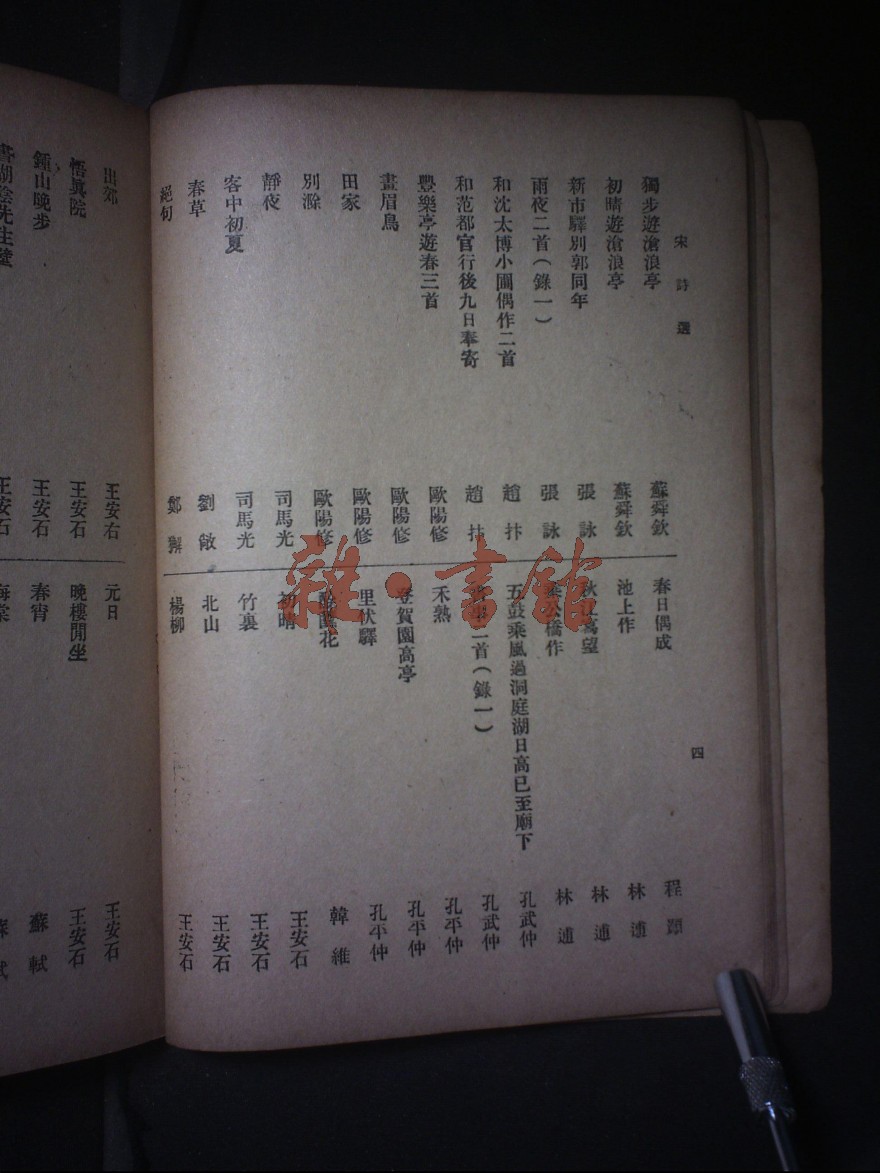 宋詩選
四
獨步遊滄浪亭 蘇舜欽
初晴遊滄浪亭 蘇舜欽
新市驛別郭同年 張詠
雨夜二首(錄一) 張詠
和沈太博小圃偶作二首 趙抃
和范都官行後九日奉寄 趙抃
豐樂亭遊春三首 歐陽修
畫眉鳥 歐陽修
田家 歐陽修
別滁 歐陽修
靜夜 司馬光
客中初夏 司馬光
春草 劉敞
絕句 鄭獬
春日偶成 程顥
池上作 林逋
秋江寫望 林逋
橋作 林逋
五鼓乘風過洞庭湖日高已至廟下 孔武仲
二首(錄一) 孔武仲
禾熟 孔平仲
登賀園高亭 孔平仲
里伏驛 孔平仲
花 韓維
初晴 王安石
竹裏 王安石
北山 王安石
楊柳 王安石
出郊 王安石
悟眞院 王安石
鍾山晚步 王安石
書湖陰先生壁 王安石
元日 王安石
晚樓閒坐 王安石
春宵 蘇軾
海棠 蘇軾
雜·書館